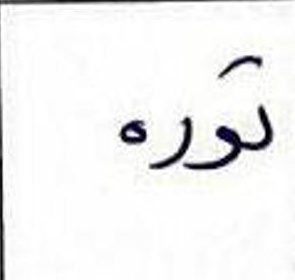 ثوره